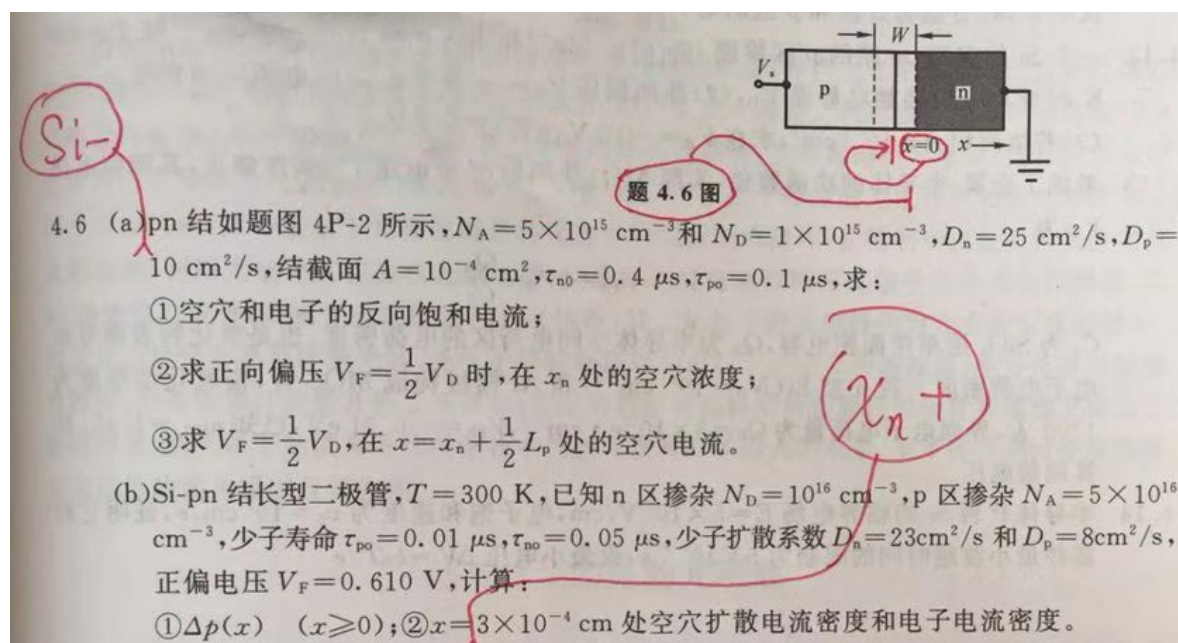 W
Vₐ
p
n
x=0 x
Si-
题 4.6 图
4.6 (a)pn 结如题图 4P-2 所示,N_A=5×10¹⁵ cm⁻³和 N_D=1×10¹⁵ cm⁻³,D_n=25 cm²/s,D_p=
10 cm²/s,结截面 A=10⁻⁴ cm²,τ_n0=0.4 μs,τ_po=0.1 μs,求:
①空穴和电子的反向饱和电流;
②求正向偏压 V_F=1/2 V_D 时,在 x_n 处的空穴浓度;
x_n +
③求 V_F=1/2 V_D,在 x=x_n+1/2 L_p 处的空穴电流。
(b)Si-pn 结长型二极管,T=300 K,已知 n 区掺杂 N_D=10¹⁶ cm⁻³,p 区掺杂 N_A=5×10¹⁶
cm⁻³,少子寿命 τ_po=0.01 μs,τ_no=0.05 μs,少子扩散系数 D_n=23cm²/s 和 D_p=8cm²/s,
正偏电压 V_F=0.610 V,计算:
①Δp(x) (x≥0);②x=3×10⁻⁴ cm 处空穴扩散电流密度和电子电流密度。